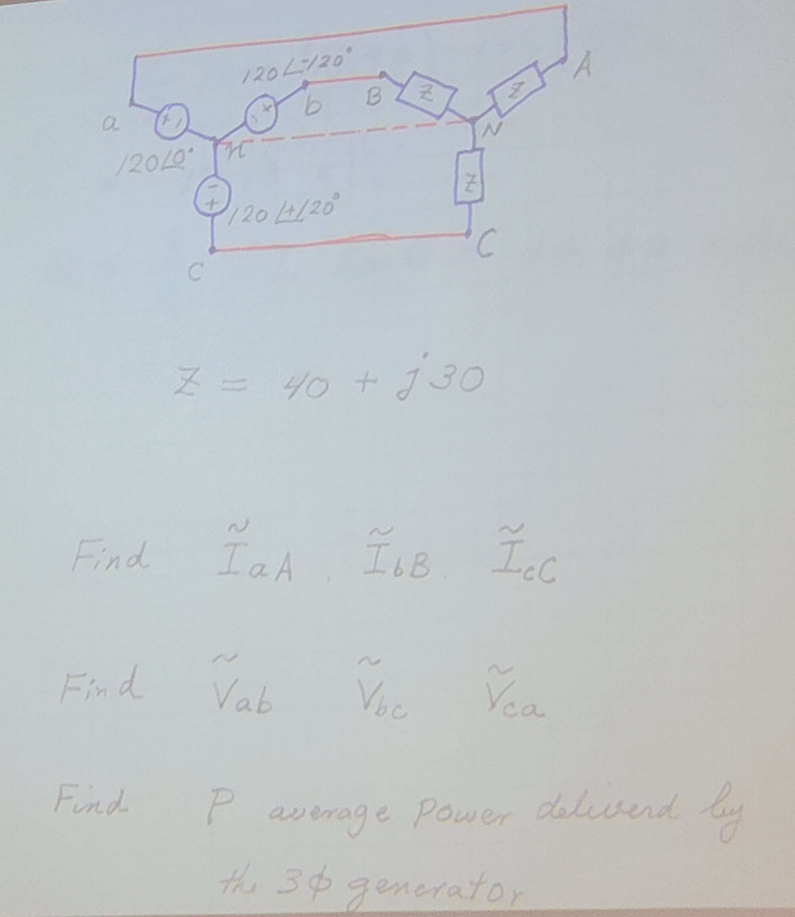 120∠-120°
A
a
+ -
- +
b
B
Z
Z
n
N
120∠0°
-
+
120∠+120°
Z
c
C
Z = 40 + j30
Find ĨaA . ĨbB . ĨcC
Find Ṽab Ṽbc Ṽca
Find P average power deliverd by
the 3ϕ generator